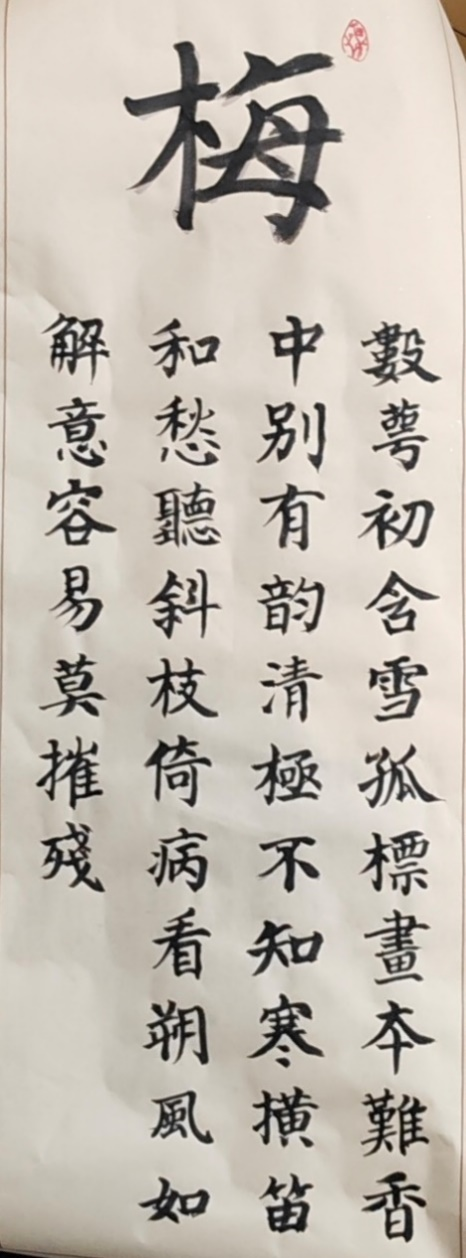 梅
數萼初含雪孤標畫夲難香
中别有韵清極不知寒橫笛
和愁聽斜枝倚病看朔風如
解意容易莫摧殘